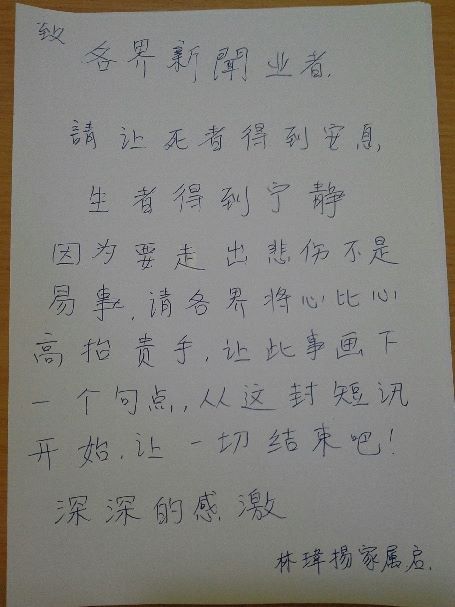 致
各界新聞业者.
請让死者得到安息,
生者得到宁静
因为要走出悲伤不是
易事,请各界将心比心
高抬贵手,让此事画下
一个句点,,从这封短讯
开始,让一切结束吧!
深深的感激
林瑋揚家属启.